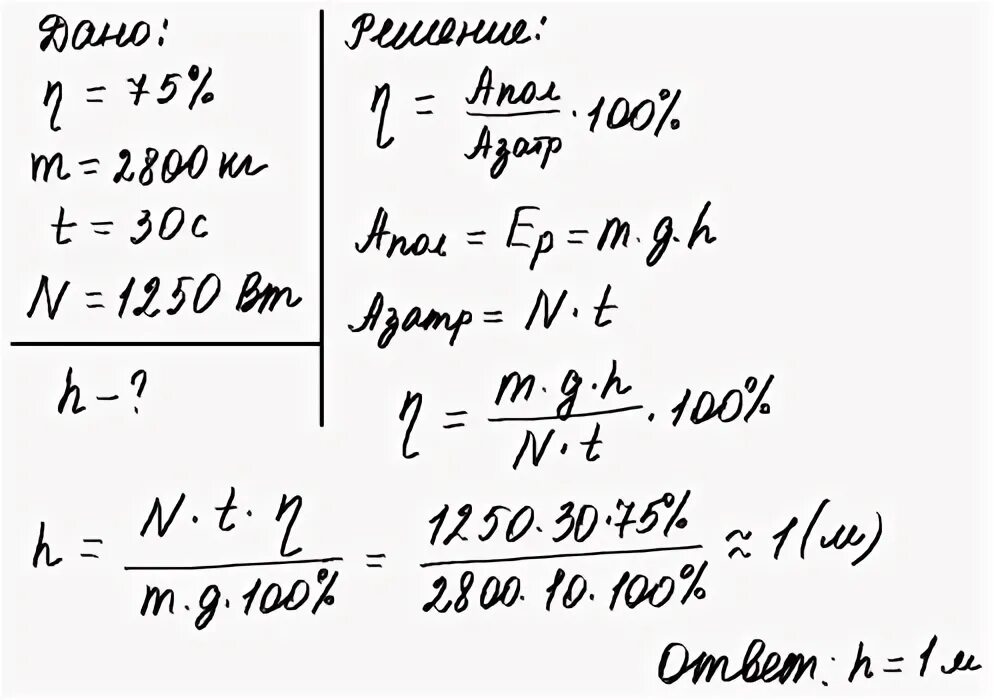 Дано:
η = 75%
m = 2800 кг
t = 30 с
N = 1250 Вт
h - ?
Решение:
η = Апол / Азатр · 100%
Апол = Ep = m · g · h
Азатр = N · t
η = m · g · h / N · t · 100%
h = N · t · η / m · g · 100% = 1250 · 30 · 75% / 2800 · 10 · 100% ≈ 1 (м)
Ответ: h = 1 м